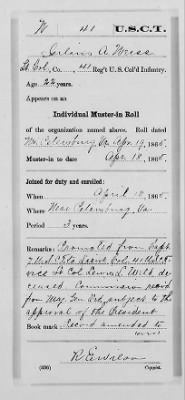 W 41 U.S.C.T.
A. Weiss
Lt Col., Co. , 41 Reg't U.S. Col'd Infantry.
Age 22 years.
Appears on an
Individual Muster-in Roll
of the organization named above. Roll dated
Nr Petersburg Va Apr 19, 1865.
Muster-in to date Apr 18, 1865.
Joined for duty and enrolled:
When April 18, 1865.
Where Near Petersburg, Va
Period 3 years.
Remarks: Promoted from Capt
vice Lt Col Lewis L. Weld de
ceased. Commission recd
from Maj. Gen Ord, subject to the
approval of the President
Book mark: Record amended to
R. E. Wilson
(356) Copyist.